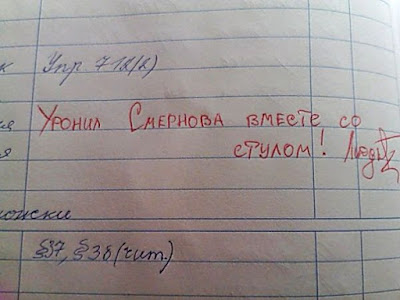 к Упр 718(2)
ия Уронил Смернова вместе со
я стулом!
оюски
§37, § 38 (чит.)